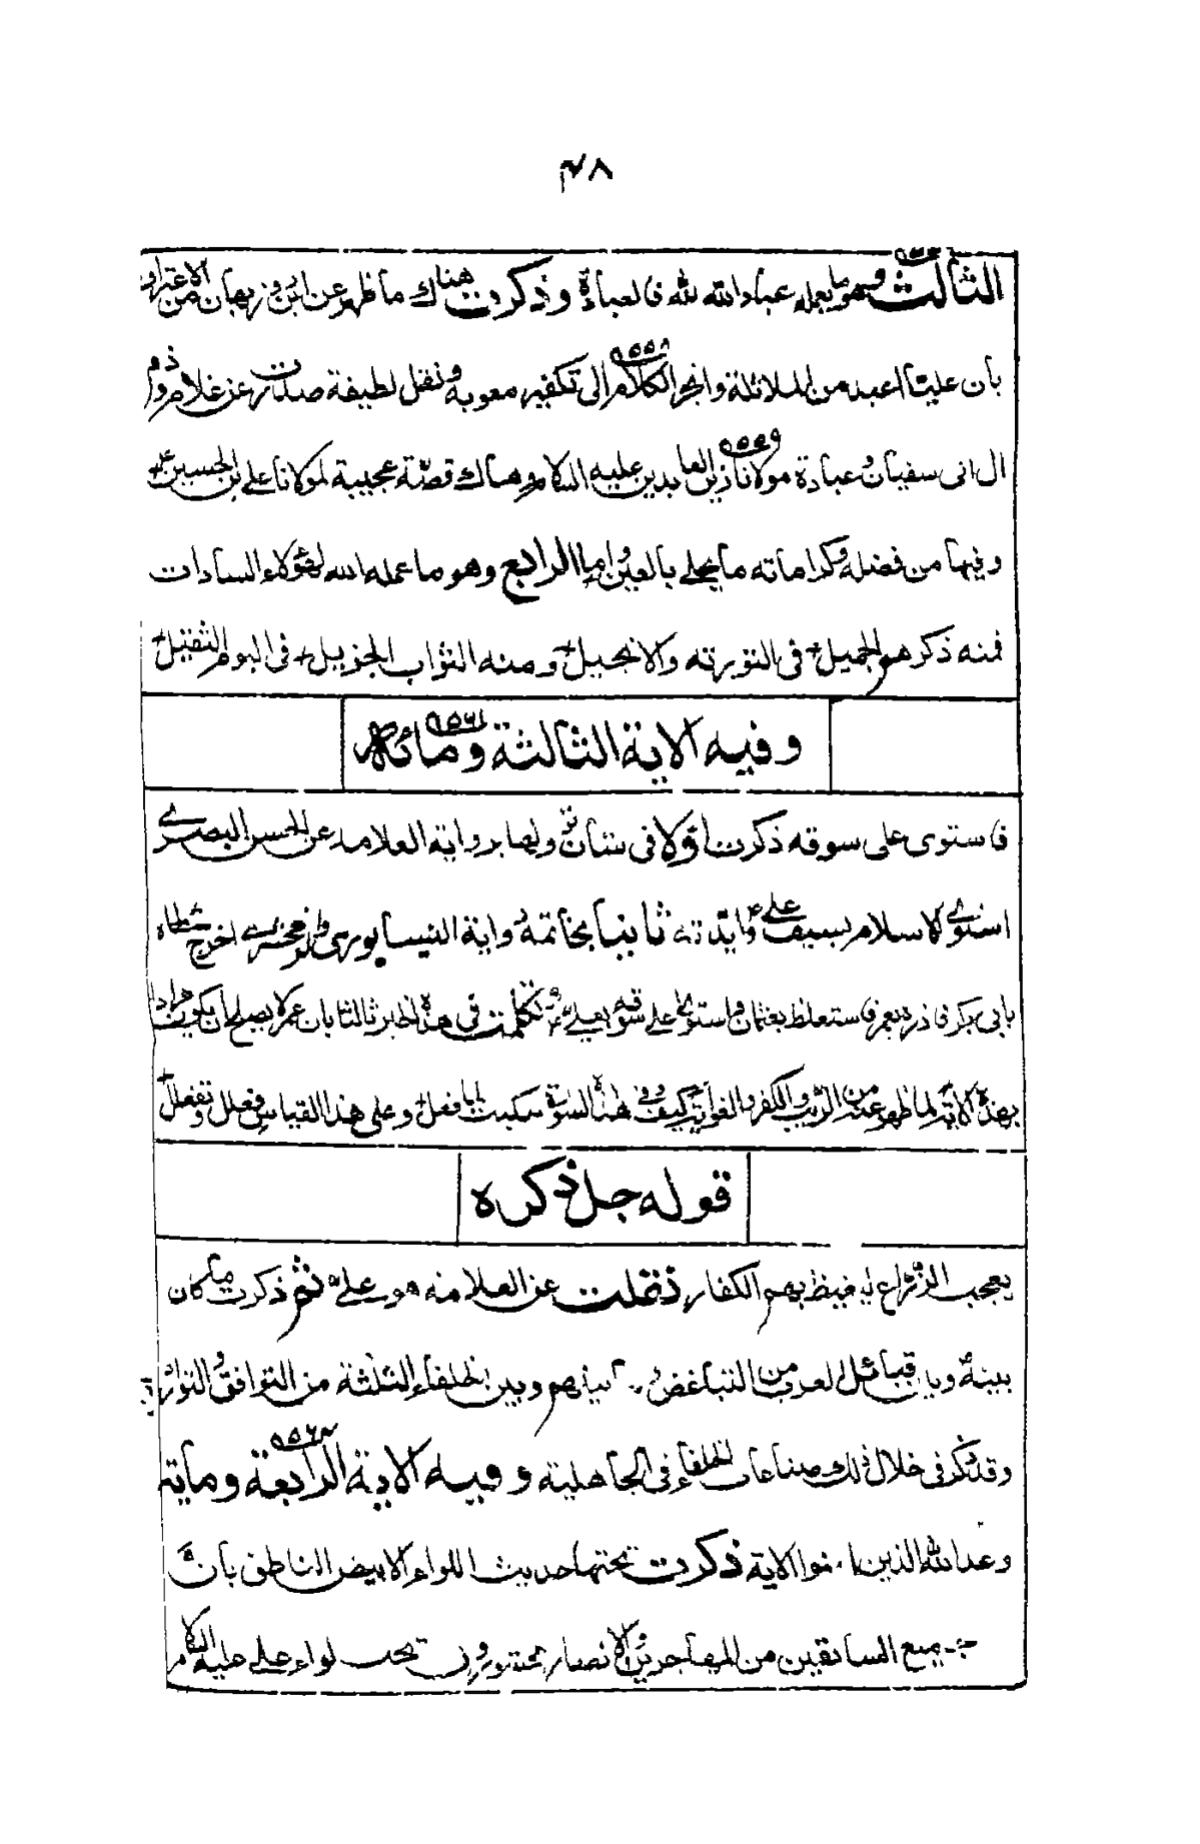 ٤٨
الثالث وهو ما يعمله عباد الله لله فالعبادة وذكرت هناك ما ظهر عن ابن روزبهان من الاعتراف
بان عليا اعبد من الملائكة وانجر الكلام الى تكفير معوية ونقل لطيفة صدرت عن غلام
ال ابى سفيان وعبادة مولانا زين العابدين عليه السلام وهناك قصة عجيبة لمولانا على بن الحسين ع
وفيها من فضله وكراماته ما يحلى بالعين اما الرابع وهو ما عمله الله لهؤلاء السادات
فمنه ذكرهم الجميل فى التورية والانجيل ومنه الثواب الجزيل فى اليوم الثقيل
٩٥٦١
وفيه الاية الثالثة ومائة
فاستوى على سوقه ذكرت اولا فى شان نزولها برواية العلامة عن الحسن البصرى
استوى الاسلام بسيف على ع وايدته ثانيا بخاتمة رواية النيسابورى والزمخشرى اخرج شطأه
بابى بكر فازره بعمر فاستغلظ بعثمان واستوى على سوقه بعلى ع وتكلمت فى هذا الخبر ثالثا بان عمر لا يصلح ان يكون مرادا
بهذه الاية لما ظهر عنه من الريب والكفر والفرار كيف وفى هذه السورة سكينة وعلى هذا القياس فعلل وتفعلل
قوله جل ذكره
يعجب الزراع ليغيظ بهم الكفار نقلت عن العلامة هو على ع ثم ذكرت ما كان
بينه وبين قبائل العرب من التباغض وما بينهم وبين الخلفاء الثلثة من التوافق والتوازر
وقد ذكر فى خلال ذلك صناعات الخلفاء فى الجاهلية وفيه الاية الرابعة وماية
وعد الله الذين امنوا الاية ذكرت تحتها حديث اللواء الابيض الناطق بان
جميع السابقين من المهاجرين والانصار يحشرون تحت لواء على عليه السلام